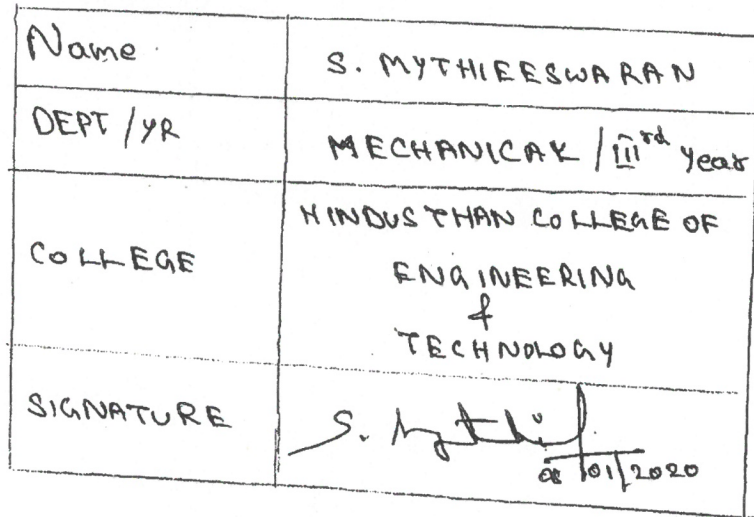 Name S. MYTHIEESWARAN
DEPT / YR MECHANICAL / IIIrd year
HINDUSTHAN COLLEGE OF
COLLEGE ENGINEERING
&
TECHNOLOGY
SIGNATURE S. Mythi
08/01/2020